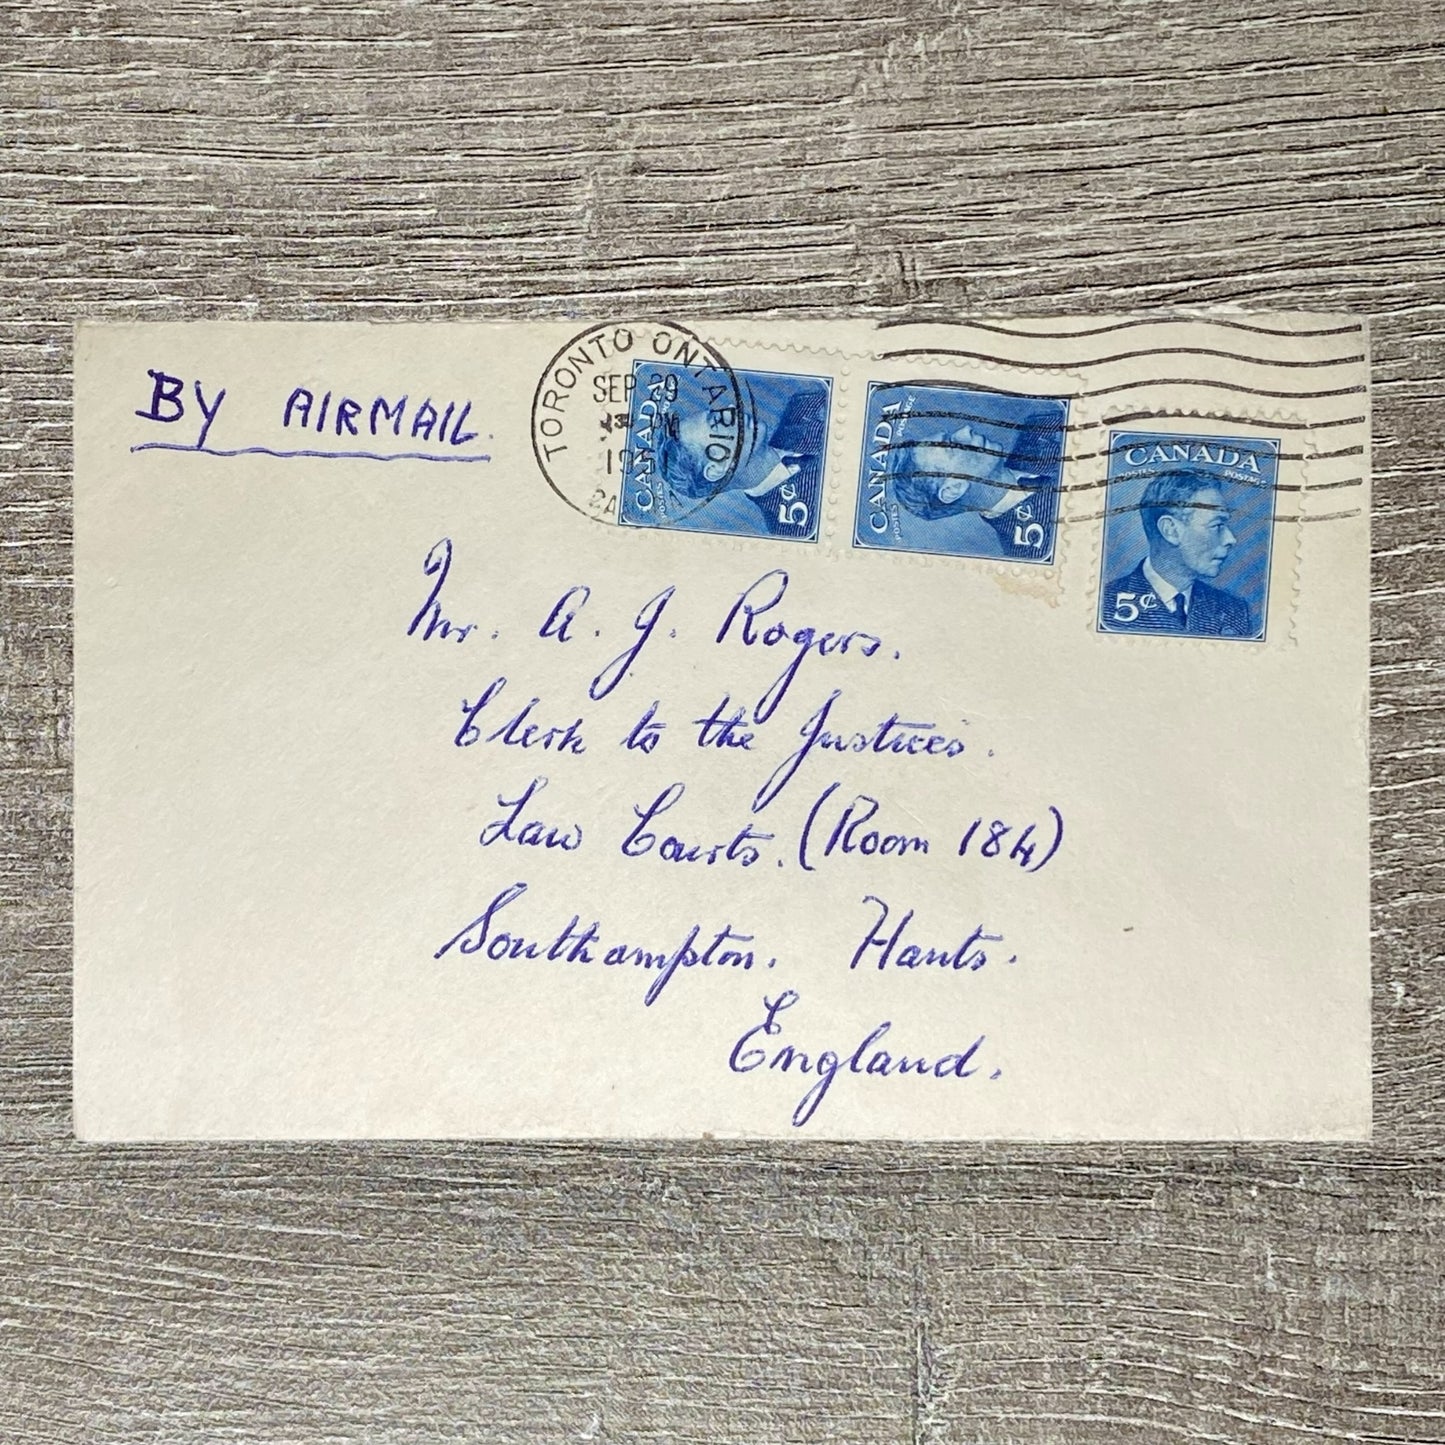 BY AIRMAIL.
TORONTO ONTARIO
SEP 29
PM
1951
CANADA
POSTES POSTAGE
5¢
CANADA
POSTES POSTAGE
5¢
CANADA
POSTES POSTAGE
5¢
Mr. A. J. Rogers.
Clerk to the Justices.
Law Courts. (Room 184)
Southampton. Hants.
England.